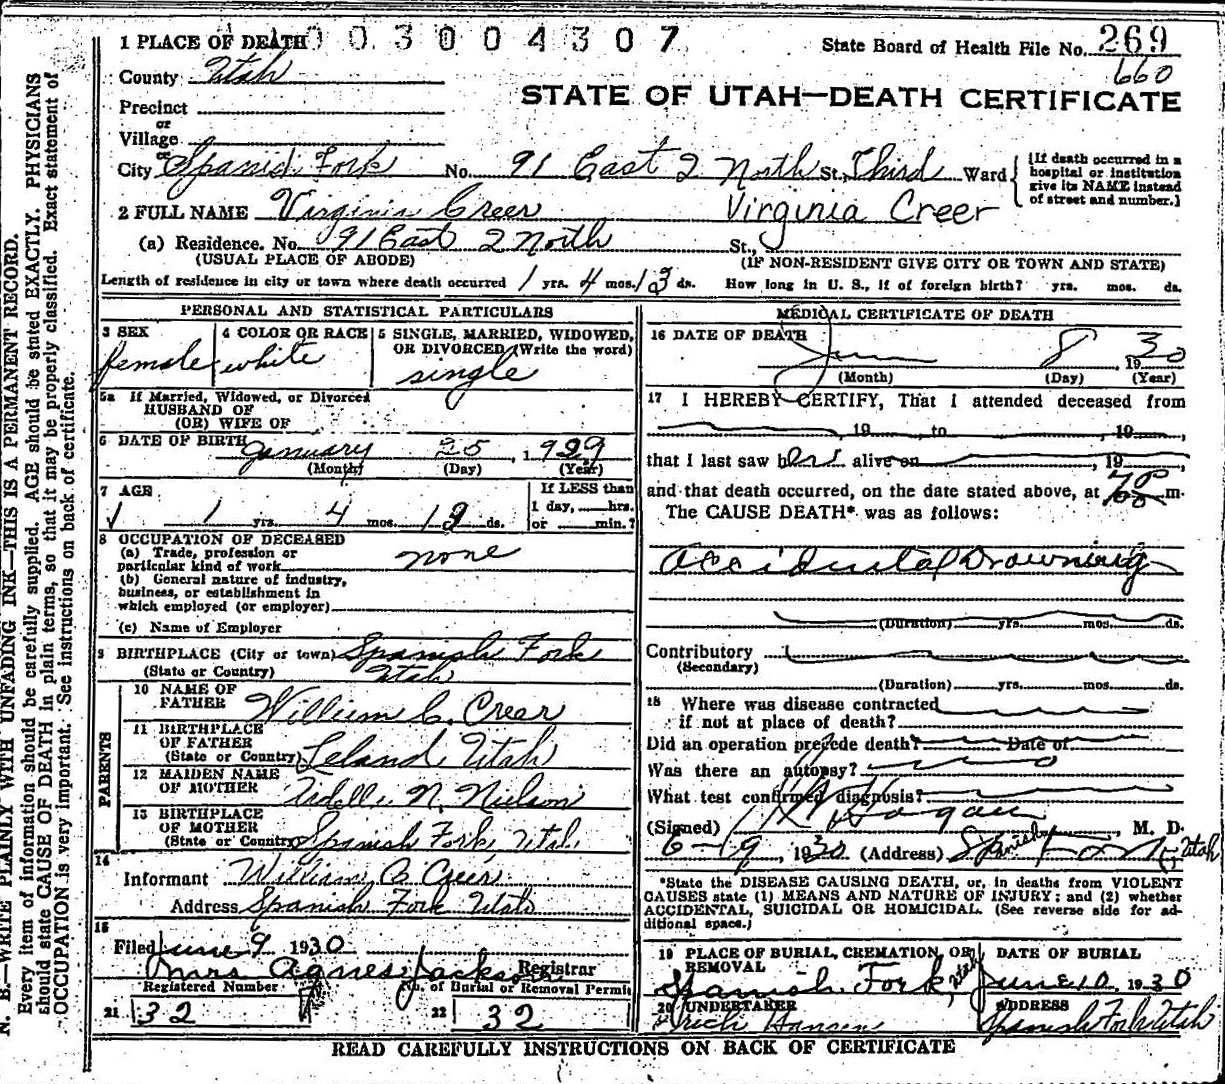 1 PLACE OF DEATH 003004307 State Board of Health File No. 269
County Utah 660
STATE OF UTAH—DEATH CERTIFICATE
Precinct
or
Village
or
City Spanish Fork No. 91 East 2 North St., Third Ward {(If death occurred in a hospital or institution give its NAME instead of street and number.)
2 FULL NAME Virginia Creer Virginia Creer
(a) Residence. No. 91 East 2 North St.,
(USUAL PLACE OF ABODE) (IF NON-RESIDENT GIVE CITY OR TOWN AND STATE)
Length of residence in city or town where death occurred 1 yrs. 4 mos. 13 ds. How long in U. S., if of foreign birth? yrs. mos. ds.
PERSONAL AND STATISTICAL PARTICULARS
3 SEX
female
4 COLOR OR RACE
white
5 SINGLE, MARRIED, WIDOWED,
OR DIVORCED (Write the word)
single
5a If Married, Widowed, or Divorced
HUSBAND OF
(OR) WIFE OF
6 DATE OF BIRTH January 25, 1929
(Month) (Day) (Year)
7 AGE
1 yrs. 4 mos. ds.
If LESS than
1 day, hrs.
or min.?
8 OCCUPATION OF DECEASED
(a) Trade, profession or
particular kind of work none
(b) General nature of industry,
business, or establishment in
which employed (or employer)
(c) Name of Employer
9 BIRTHPLACE (City or town) Spanish Fork
(State or Country) Utah
PARENTS
10 NAME OF
FATHER William C. Creer
11 BIRTHPLACE
OF FATHER
(State or Country) Leland, Utah
12 MAIDEN NAME
OF MOTHER N. Nielson
13 BIRTHPLACE
OF MOTHER
(State or Country) Spanish Fork, Utah.
14
Informant William C Creer
Address Spanish Fork Utah
15
Filed June 9 1930
Mrs Agnes Jackson Registrar
Registered Number No. of Burial or Removal Permit
21 32 22 32
MEDICAL CERTIFICATE OF DEATH
16 DATE OF DEATH
June 8, 1930
(Month) (Day) (Year)
17 I HEREBY CERTIFY, That I attended deceased from
, 19 , to , 19
that I last saw her alive on , 19
and that death occurred, on the date stated above, at m.
The CAUSE DEATH* was as follows:
Accidental Drowning
(Duration) yrs. mos. ds.
Contributory
(Secondary)
(Duration) yrs. mos. ds.
18 Where was disease contracted
if not at place of death?
Did an operation precede death? Date of
Was there an autopsy? no
What test confirmed diagnosis?
(Signed) Hogan, M. D.
6-19, 1930 (Address) Spanish Fork Utah
*State the DISEASE CAUSING DEATH, or, in deaths from VIOLENT
CAUSES state (1) MEANS AND NATURE OF INJURY; and (2) whether
ACCIDENTAL, SUICIDAL OR HOMICIDAL. (See reverse side for ad-
ditional space.)
19 PLACE OF BURIAL, CREMATION, OR
REMOVAL
Spanish Fork, Utah
DATE OF BURIAL
June 10, 1930
20 UNDERTAKER
Hansen
ADDRESS
Spanish Fork Utah
READ CAREFULLY INSTRUCTIONS ON BACK OF CERTIFICATE
N. B.—WRITE PLAINLY WITH UNFADING INK—THIS IS A PERMANENT RECORD.
Every item of information should be carefully supplied. AGE should be stated EXACTLY. PHYSICIANS
should state CAUSE OF DEATH in plain terms, so that it may be properly classified. Exact statement of
OCCUPATION is very important. See instructions on back of certificate.